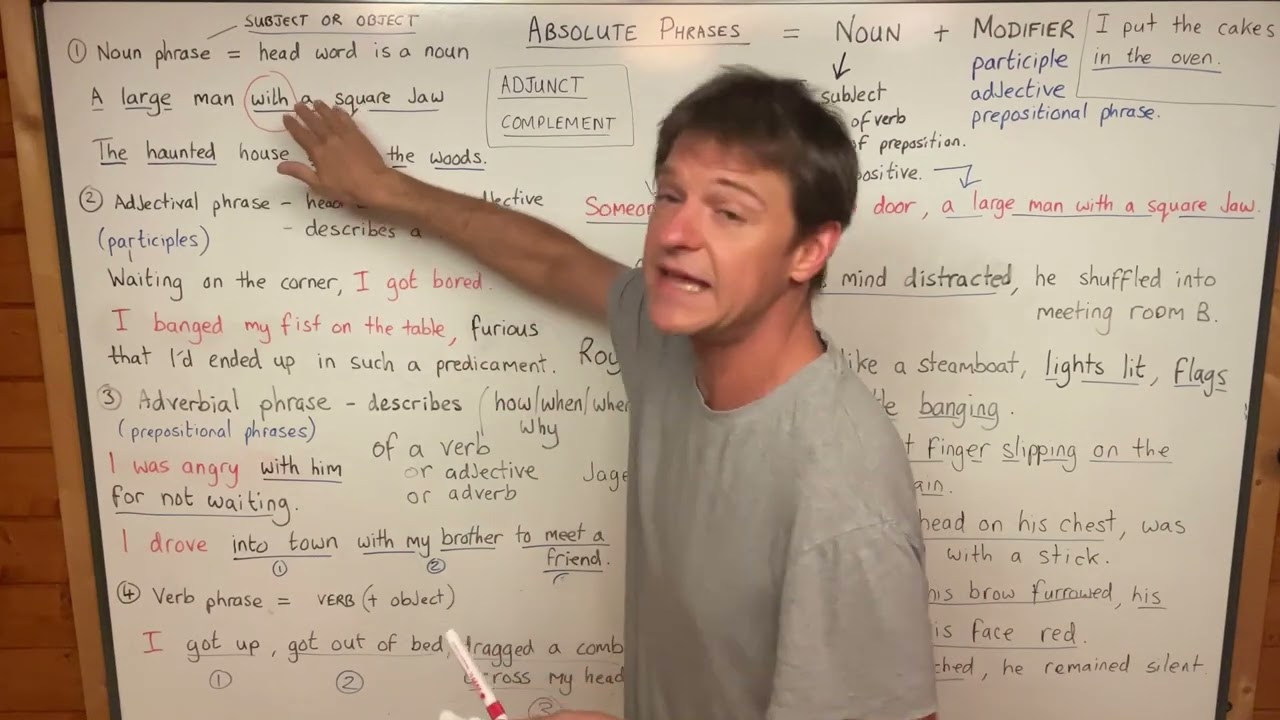 SUBJECT OR OBJECT
① Noun phrase = head word is a noun
A large man with a square Jaw
The haunted house the woods.
② Adjectival phrase –
(participles) – describes a
Waiting on the corner, I got bored.
I banged my fist on the table, furious
that I'd ended up in such a predicament.
③ Adverbial phrase – describes how/when/wher
(prepositional phrases) of a verb why
I was angry with him or adjective
for not waiting. or adverb
I drove into town with my brother to meet a
① ② friend.
④ Verb phrase = VERB (+ object)
I got up, got out of bed, dragged a comb
① ② across my head
ADJUNCT
COMPLEMENT
ABSOLUTE PHRASES = NOUN + MODIFIER
subject
of verb
of preposition.
participle
adjective
prepositional phrase.
I put the cakes
in the oven.
door, a large man with a square Jaw.
mind distracted, he shuffled into
meeting room B.
like a steamboat, lights lit, flags
banging.
finger slipping on the
head on his chest, was
with a stick.
his brow furrowed, his
his face red.
he remained silent